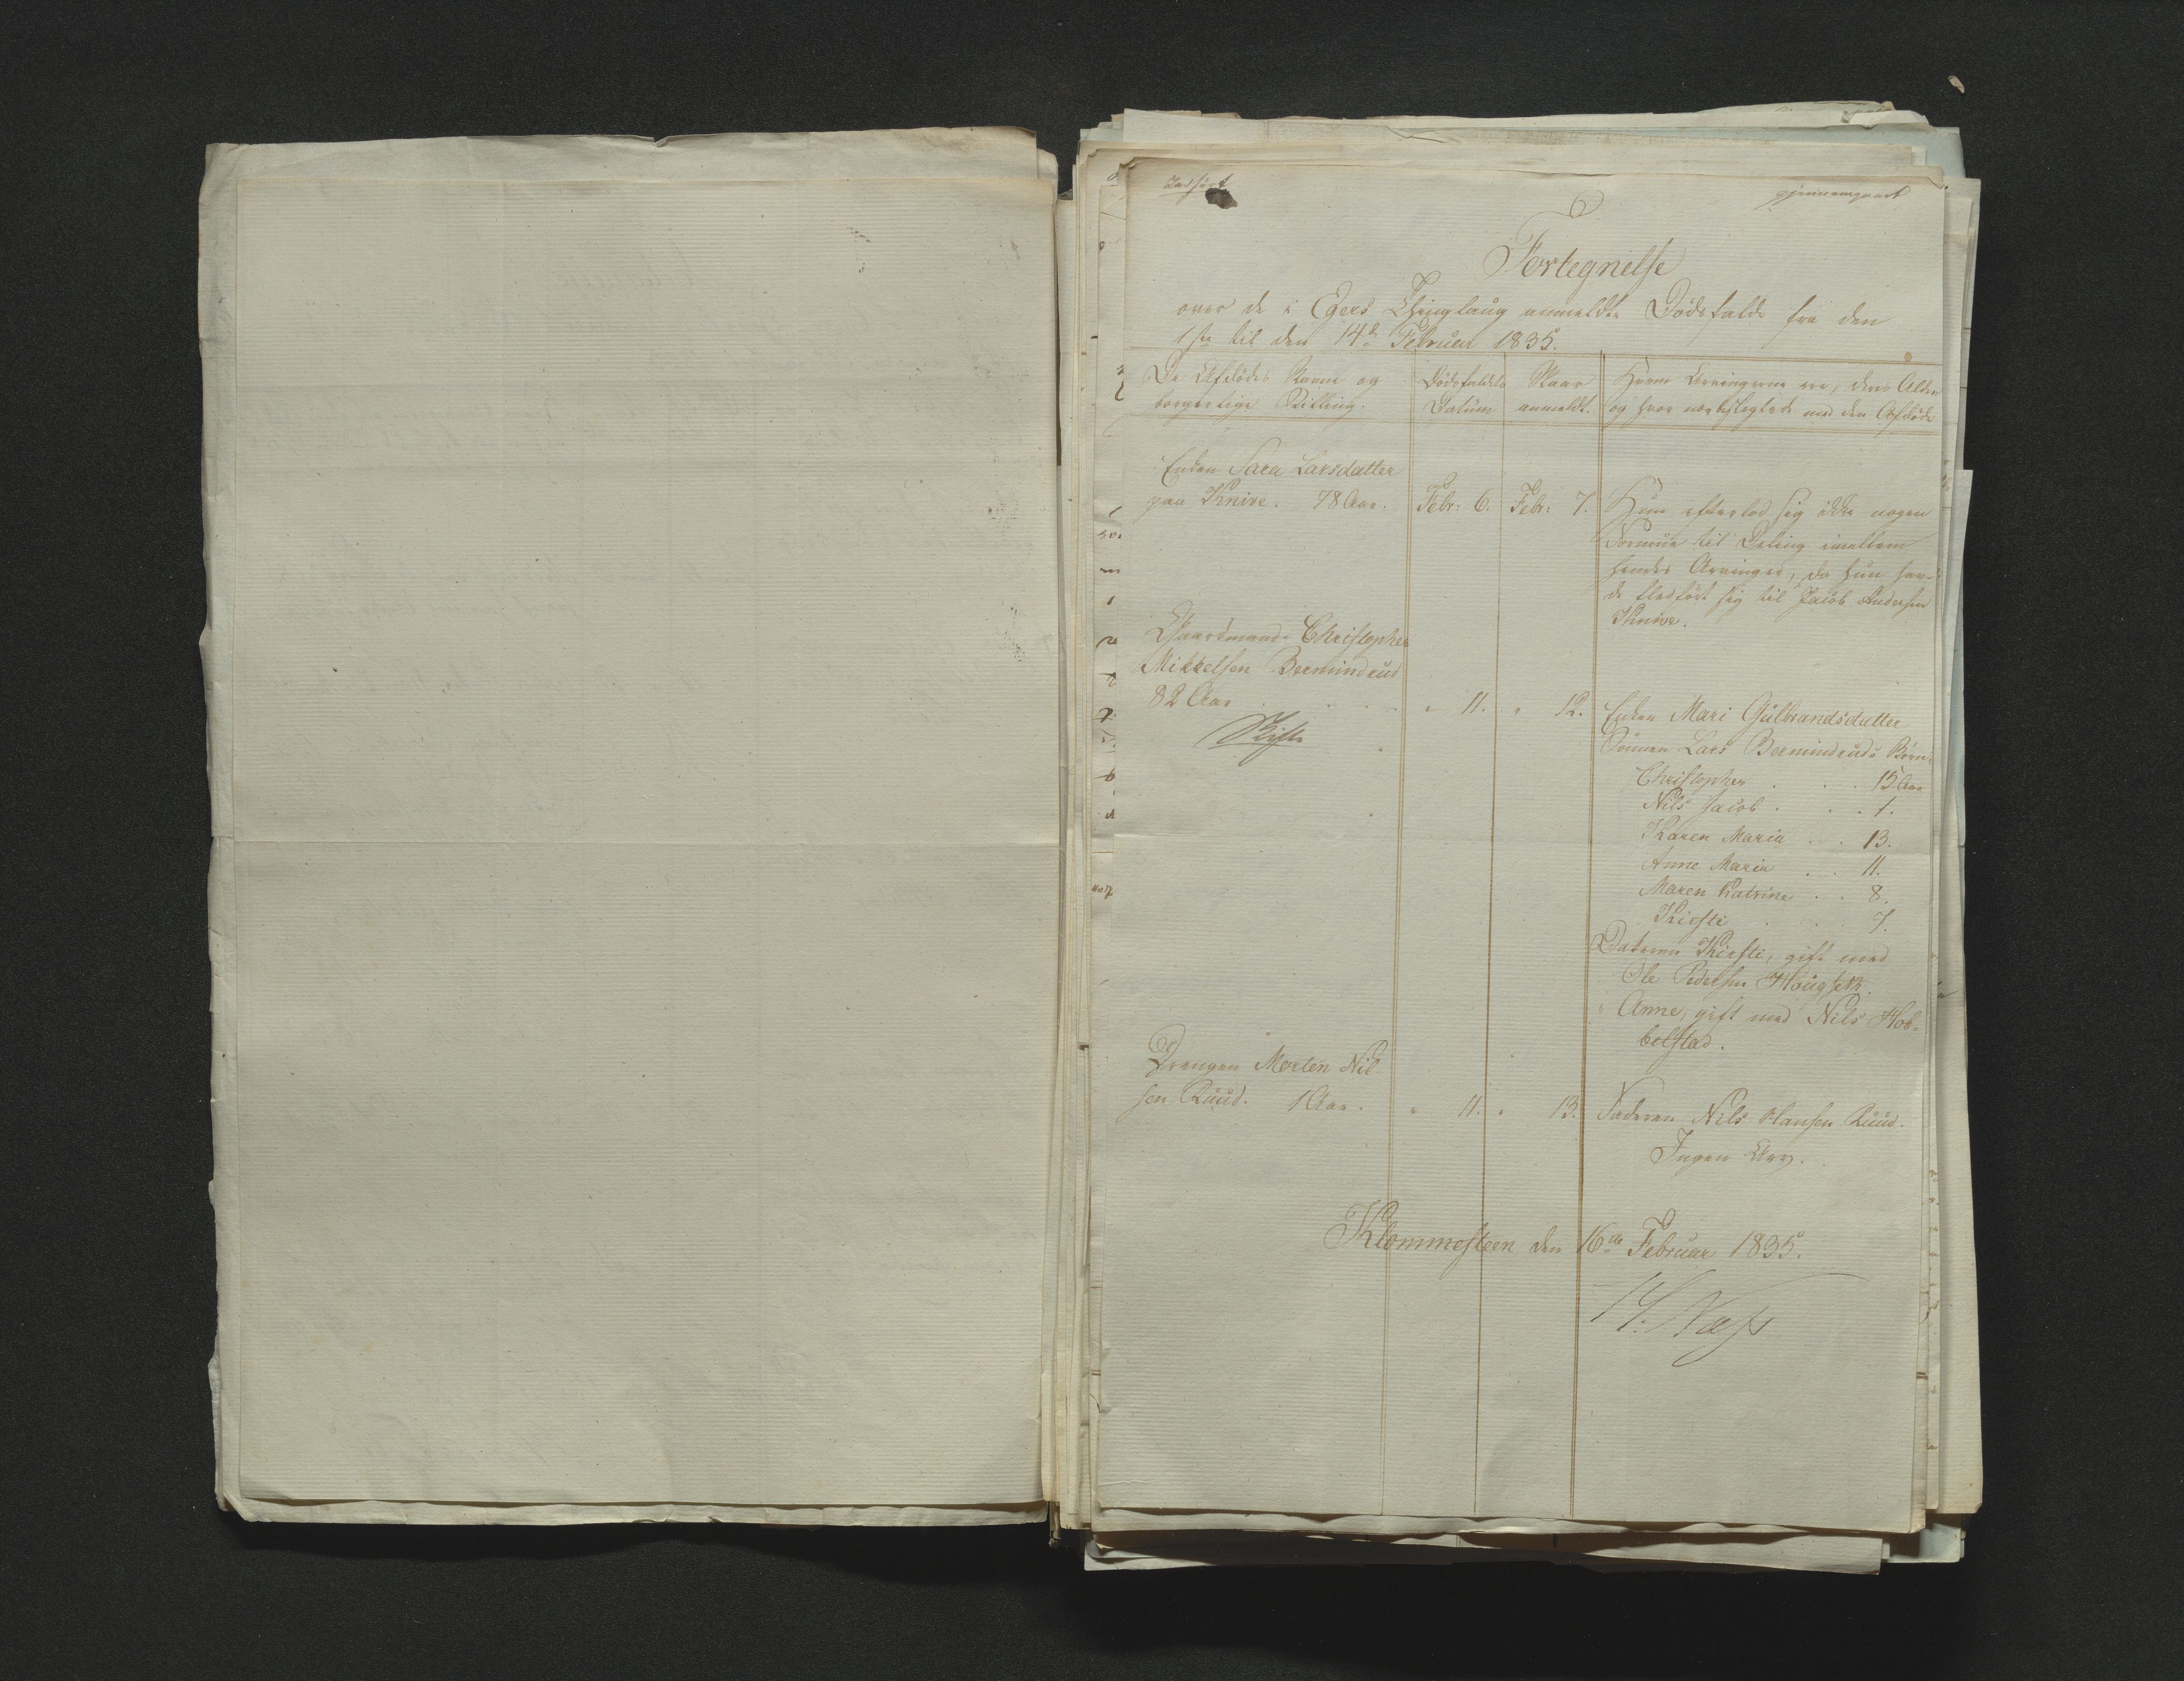 Indført
gjennemgaaet
6
Fortegnelse
over de i Egers Thinglaug anmeldte Dødsfalde fra den
1ste til den 14de Februar 1835.
De Afdødes Navne og borgerlige Stilling.
Dødsfaldets Datum
Naar anmeldt.
Hvem Arvingerne ere, deres Alder og hvor nærbeslægtede med den Afdøde
Enken Sara Larsdatter
paa Knive. 78 Aar. Febr: 6. Febr: 7. Hun efterlod sig ikke nogen
Formue til Deling imellem
hendes Arvinger, da hun hav-
de fledført sig til Jacob Andersen
Knive.
Gaardmand Christopher
Mikkelsen Bermindrud
82 Aar " 11. " 12. Enken Mari Gulbrandsdatter
Skifte
Sønnen Lars Bermindruds Børn:
Christopher . . . 15 Aar
Nils Jacob . . . 1.
Karen Maria . . 13.
Anne Maria . . 11.
Maren Katrine . . 8.
Kirsti . . . 7.
Datteren Kirsti, gift med
Ole Pedersen Hougseth.
" Anne, gift med Nils Hob-
belstad.
Drengen Morten Nil-
sen Ruud. 1 Aar. " 11. " 13. Faderen Nils Hansen Ruud.
Ingen Arv.
Klommesteen den 16de Februar 1835.
H. Næss